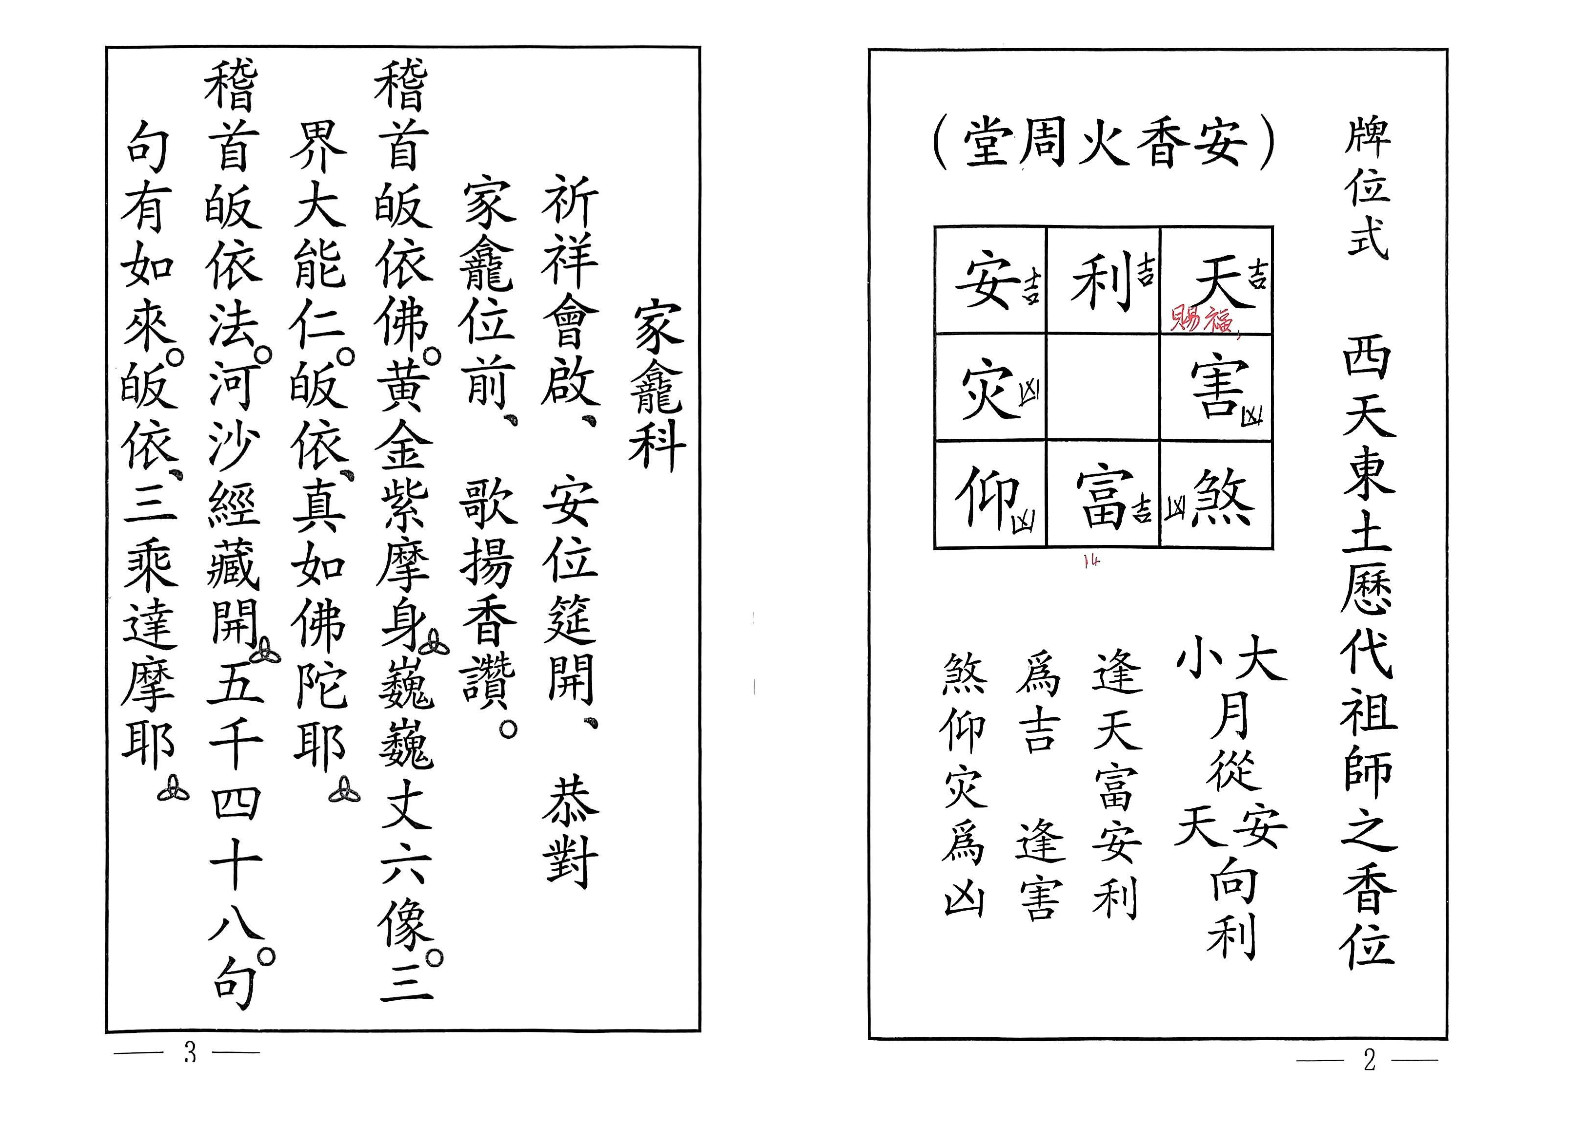 牌位式　西天東土歷代祖師之香位
（堂周火香安）
安吉 利吉 天吉
賜福，
灾凶 害凶
仰凶 富吉 煞凶
14
大小月從安天向利
逢天富安利
爲吉　逢害
煞仰灾爲凶
2
家龕科
祈祥會啟、安位筵開、恭對
家龕位前、歌揚香讚。
稽首皈依佛。黃金紫摩身巍巍丈六像。三
界大能仁。皈依、真如佛陀耶
稽首皈依法。河沙經藏開五千四十八句。
句有如來。皈依、三乘達摩耶
3